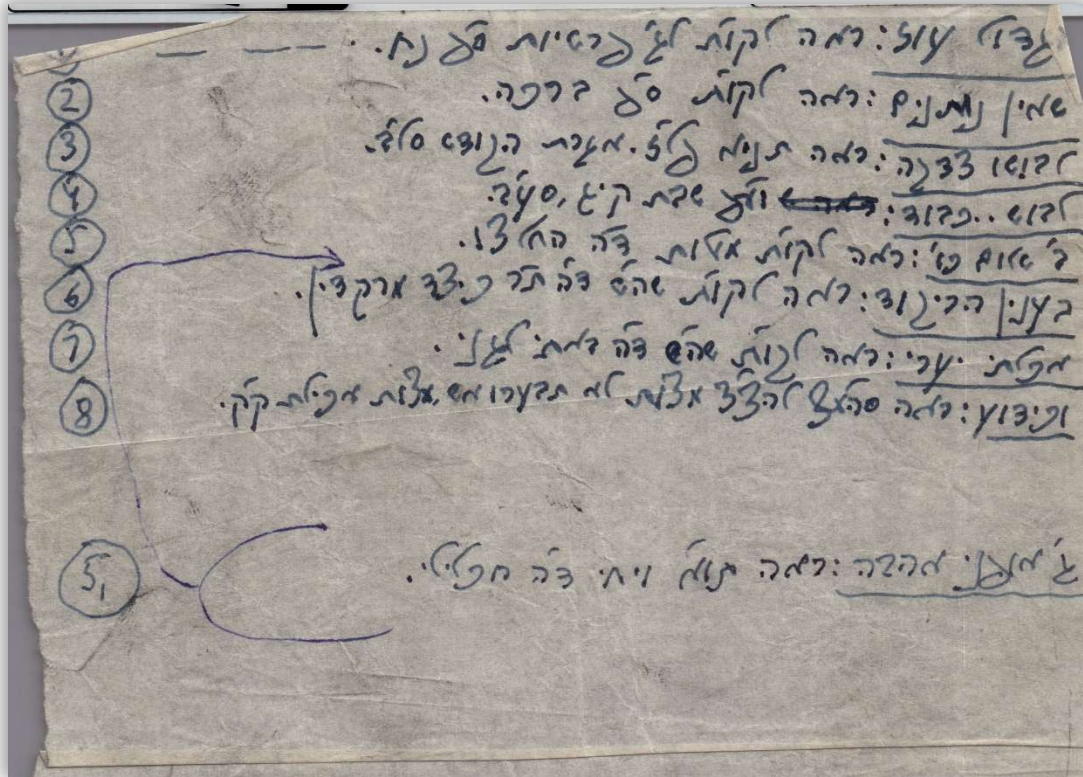 גדול עוז: ראה לקו"ת לג' פרשיות ס"פ נח.
② שאין נותנים: ראה לקו"ת ס"פ ברכה.
③ לבושו צדקה: ראה תניא פל"ז. אגרת הקודש
④ לבוש..כבוד: שבת קי"ג, סע"ב.
⑤ ראה לקו"ת מטות ד"ה החלצו.
⑥ בענין הריקוד: ראה לקו"ת שה"ש ד"ה ת"ר כיצד מרקדין.
⑦ אכלתי יערי: ראה לקו"ת שה"ש ד"ה באתי לגני.
⑧ וכידוע: ראה סהמ"צ להצ"צ מצות לא תבערו אש, מצות אכילת ק"ק.
5, ג' אופני אהבה: ראה תו"א ויחי ד"ה חכלילי.